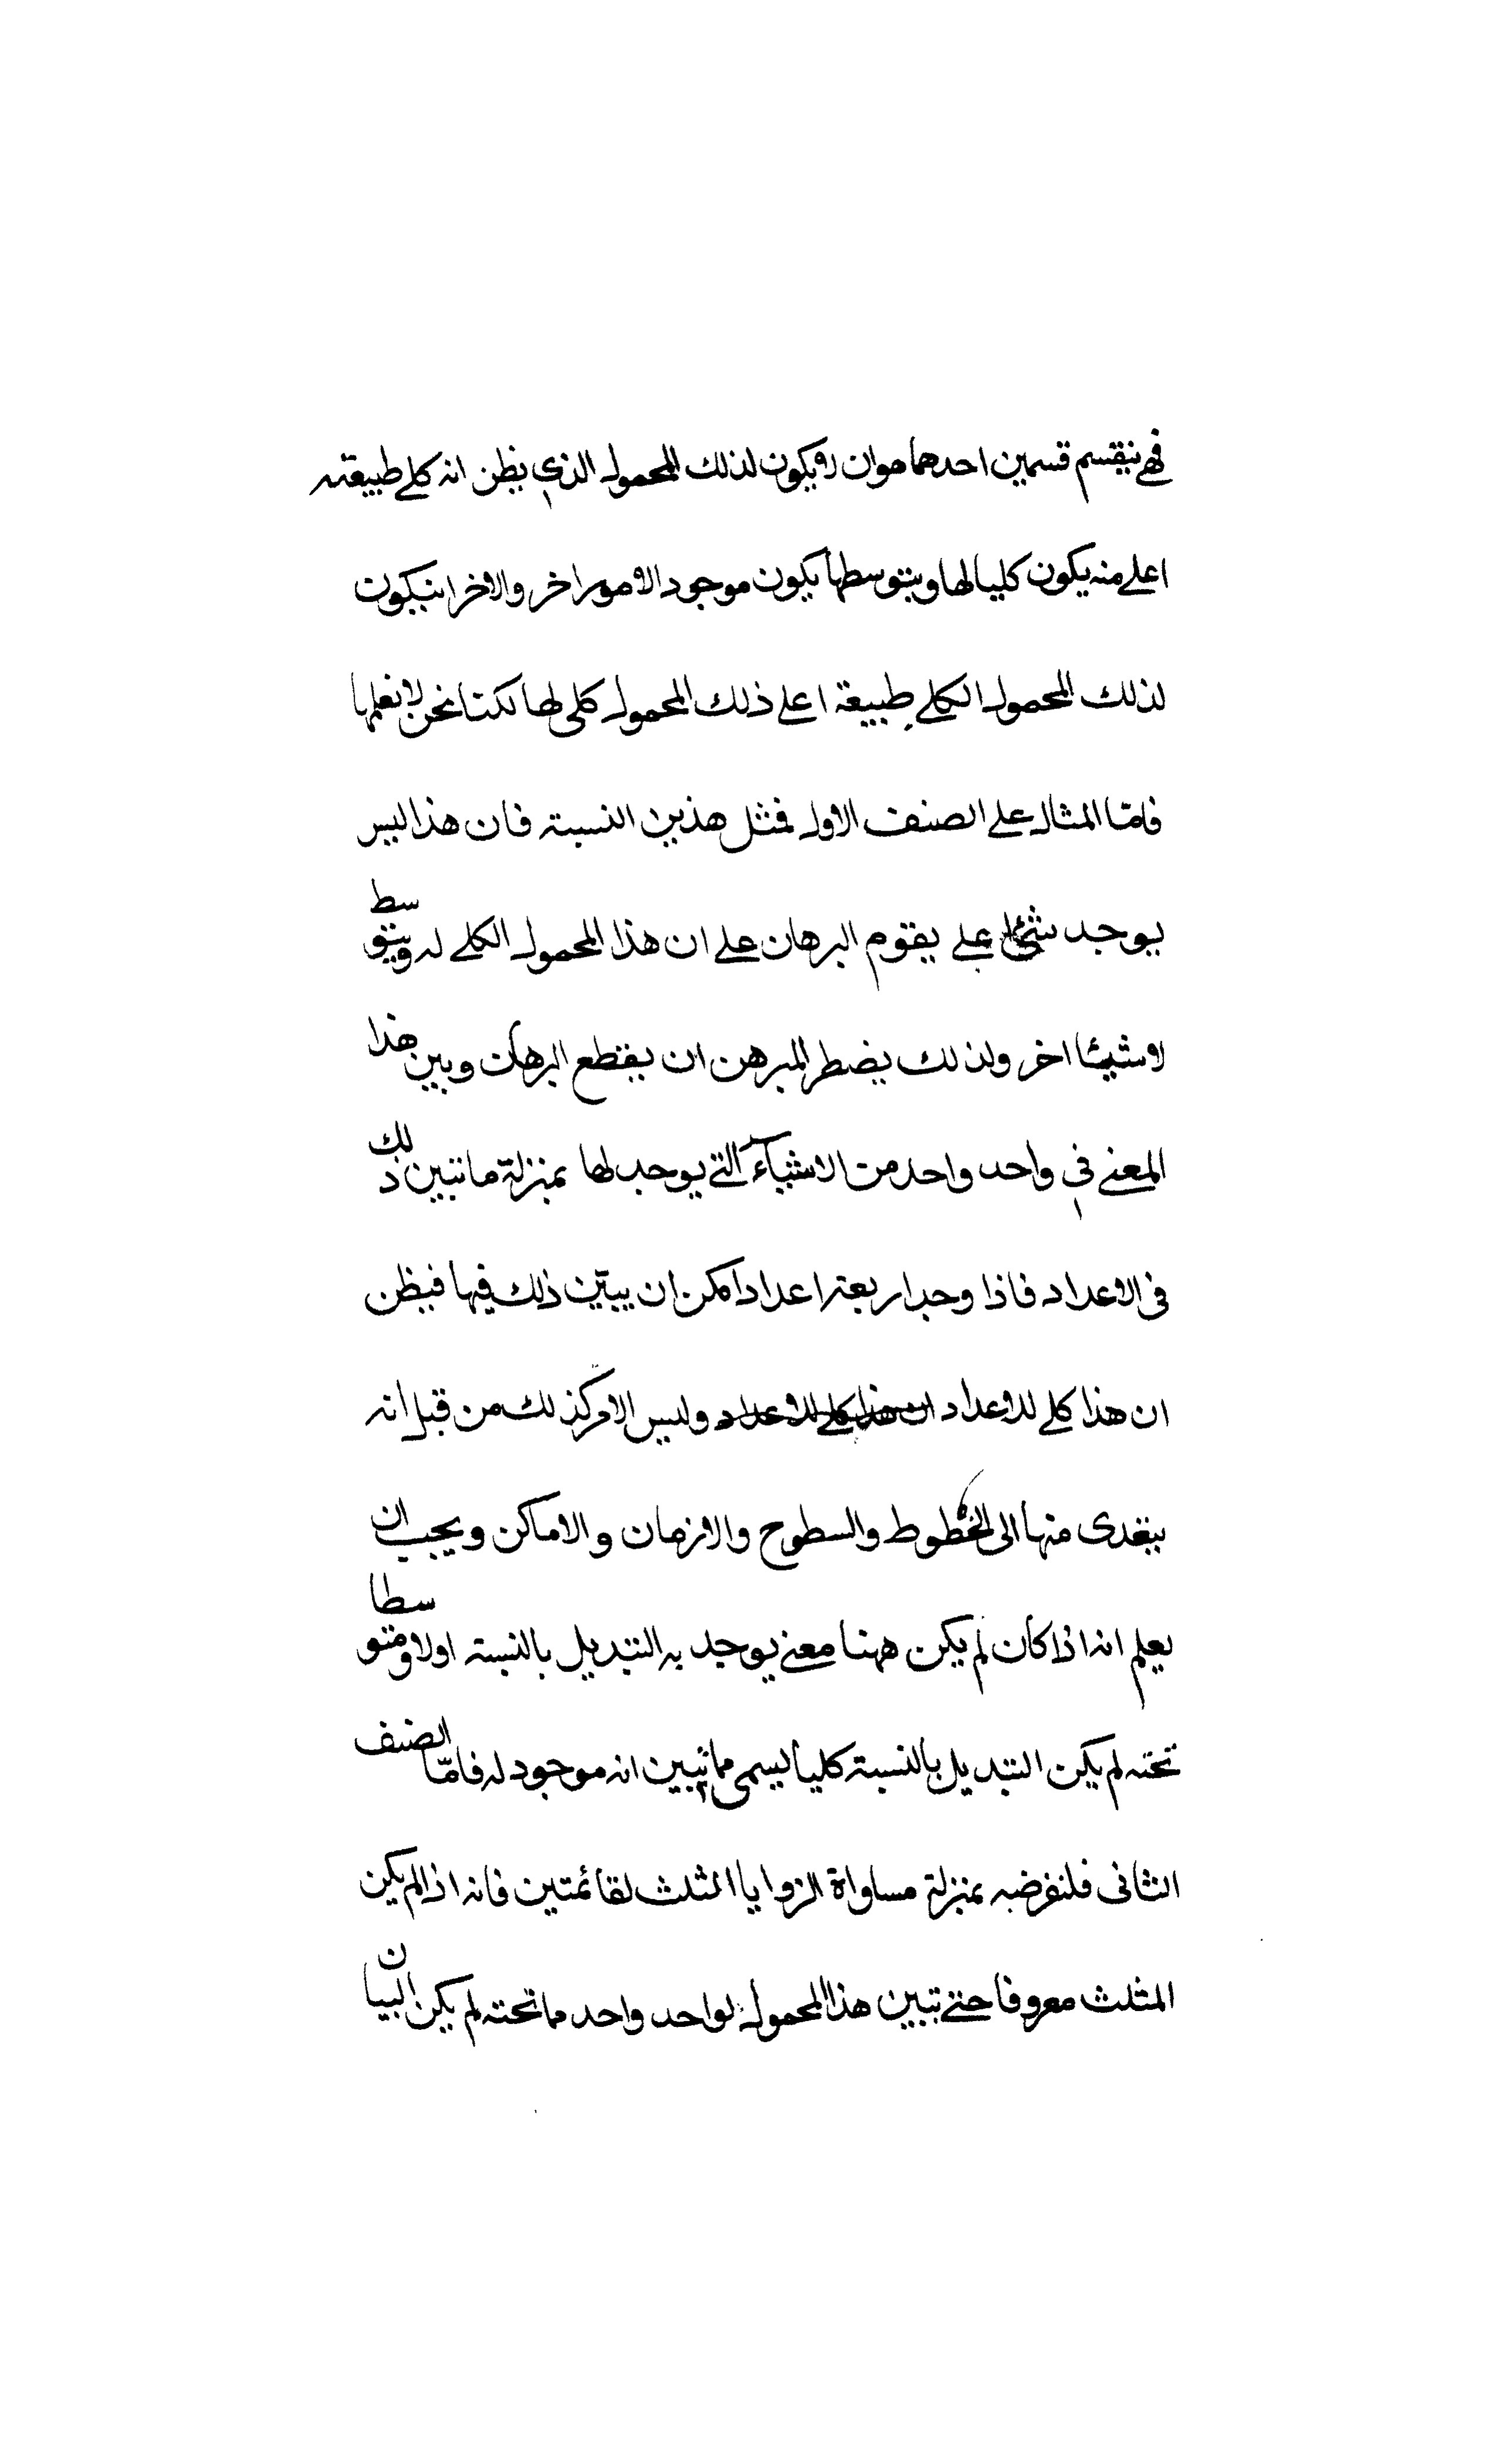 فهي ينقسم قسمين احدهما هو ان لا يكون لذلك المحمول الذي يظن انه كلي طبيعته
اعلي منه يكون كليا لها وبتوسطها يكون موجود الامور اخر والاخر ان يكون
لذلك المحمول الكلي طبيعة اعلي ذلك المحمول كلي لها لكنا نحن لا نعلمها
فامّا المثال علي الصنف الاول فمثل هذين النسبته فان هذا ليس
يوجد شئ اعلي يقوم البرهان علي ان هذا المحمول الكلي له وبتوسط
لاشيئا اخر ولذلك يضطر المبرهن ان يقطع البرهان وبين هذا
المعني في واحد واحد من الاشيآء التي يوجد لها بمنزلة ما نتبين ذلك
في الاعداد فاذا وجد اربعة اعداد امكن ان يبيّن ذلك فيها فيظن
ان هذا كلي للاعداد ان هذا كلي للاعداد وليس الامر كذلك من قبل انه
يتعدى منها الى الخطوط والسطوح والازمان والاماكن ويجب ان
يعلم انه اذا كان لم يكن ههنا معني يوجد به التبديل بالنسبته اولا ومتوسطا
تحته لم يكن التبديل بالنسبته كليا ليسمى مما تبين انه موجود له فامّا الصنف
الثانى فلنفرضه بمنزلة مساواة الزوايا المثلث لقائمتين فانه اذا لم يكن
المثلث معروفا حتي تبين هذا المحمول لواحد واحد مما تحته لم يكن البيان